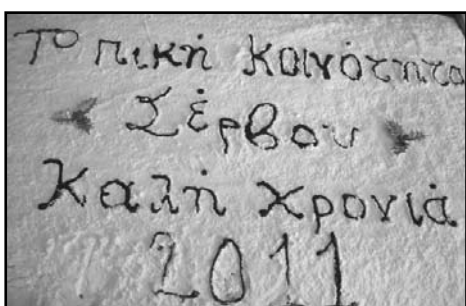 Τοπική Κοινότητα
Σέρβου
Καλή χρονιά
2011